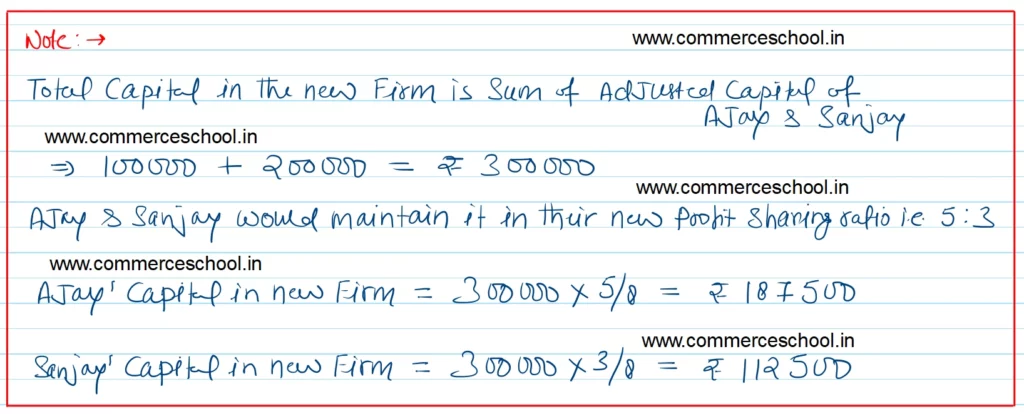 Note: →
www.commerceschool.in
Total Capital in the new Firm is Sum of Adjusted Capital of
Ajay & Sanjay
www.commerceschool.in
⇒ 100000 + 200000 = ₹ 300000
www.commerceschool.in
Ajay & Sanjay would maintain it in their new profit sharing ratio i.e 5:3
www.commerceschool.in
Ajay' Capital in new Firm = 300000 × 5/8 = ₹ 187500
www.commerceschool.in
Sanjay' Capital in new Firm = 300000 × 3/8 = ₹ 112500